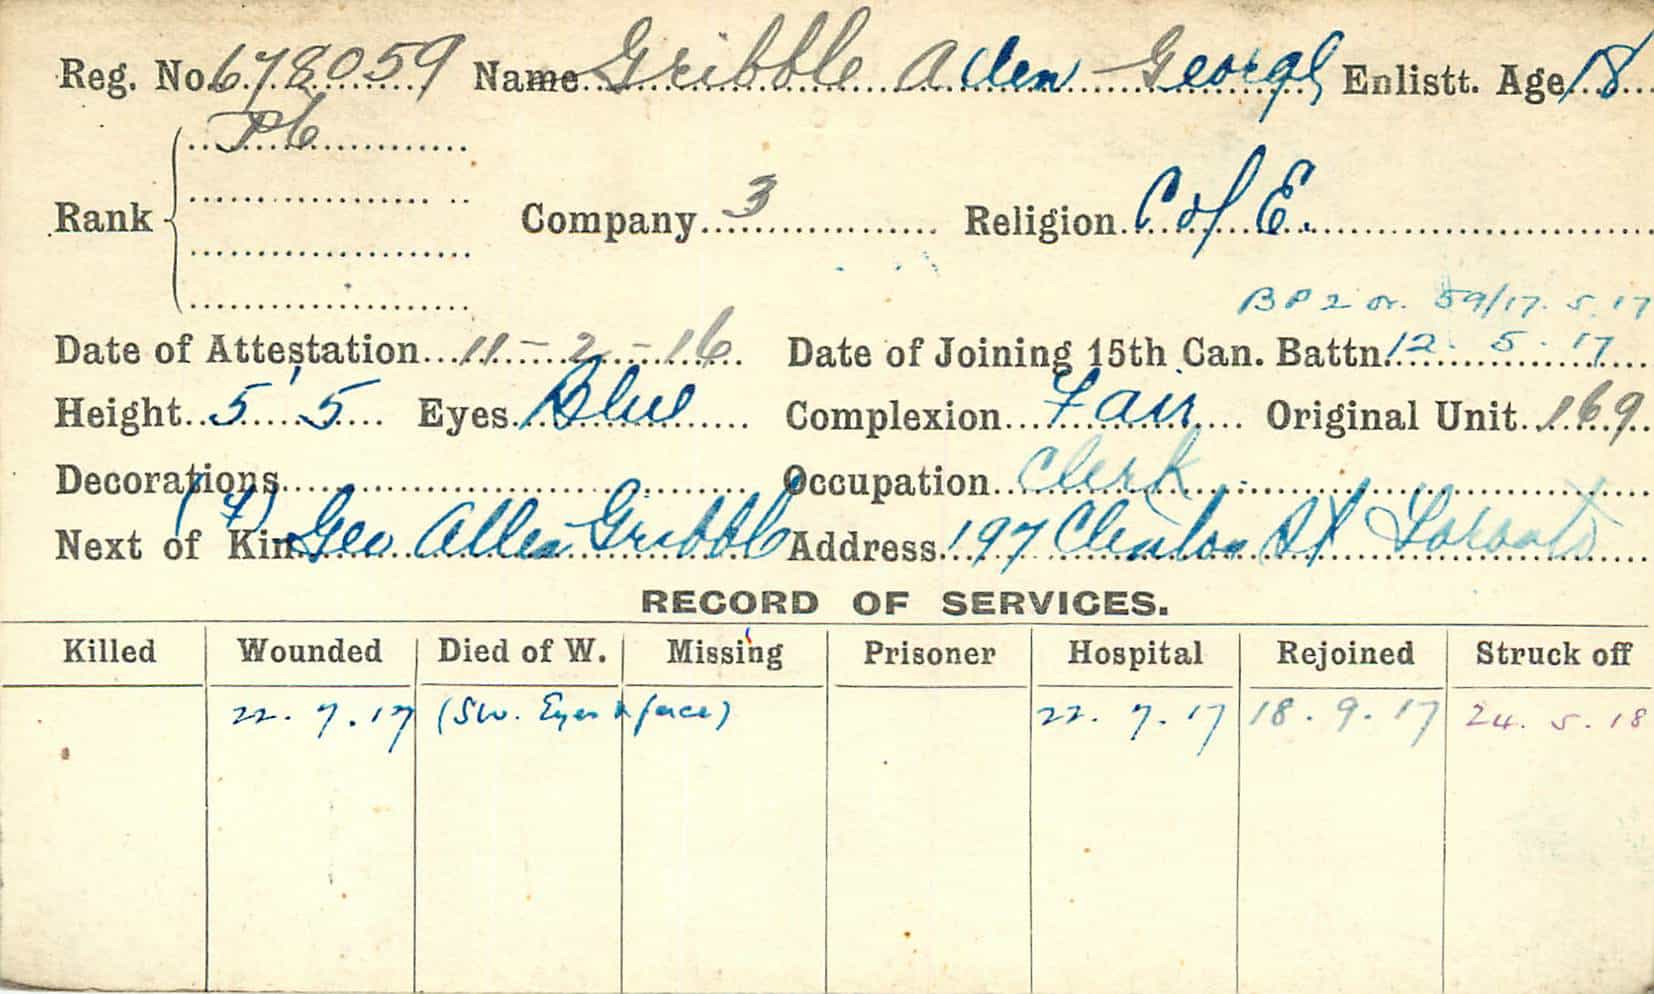 Reg. No. 678059 Name Gribble Allen George Enlistt. Age 18
Pte
Rank Company 3 Religion C of E.
BP2 or. 59/17. 5. 17
Date of Attestation 11-2-16 Date of Joining 15th Can. Battn. 12. 5. 17
Height 5'5 Eyes Blue Complexion Fair Original Unit 169
Decorations Occupation Clerk
(F)
Next of Kin Geo Allen Gribble Address 197 Clinton St Toronto
RECORD OF SERVICES.
Killed Wounded Died of W. Missing Prisoner Hospital Rejoined Struck off
22. 7. 17 (SW. Eyes & face) 22. 7. 17 18. 9. 17 24. 5. 18